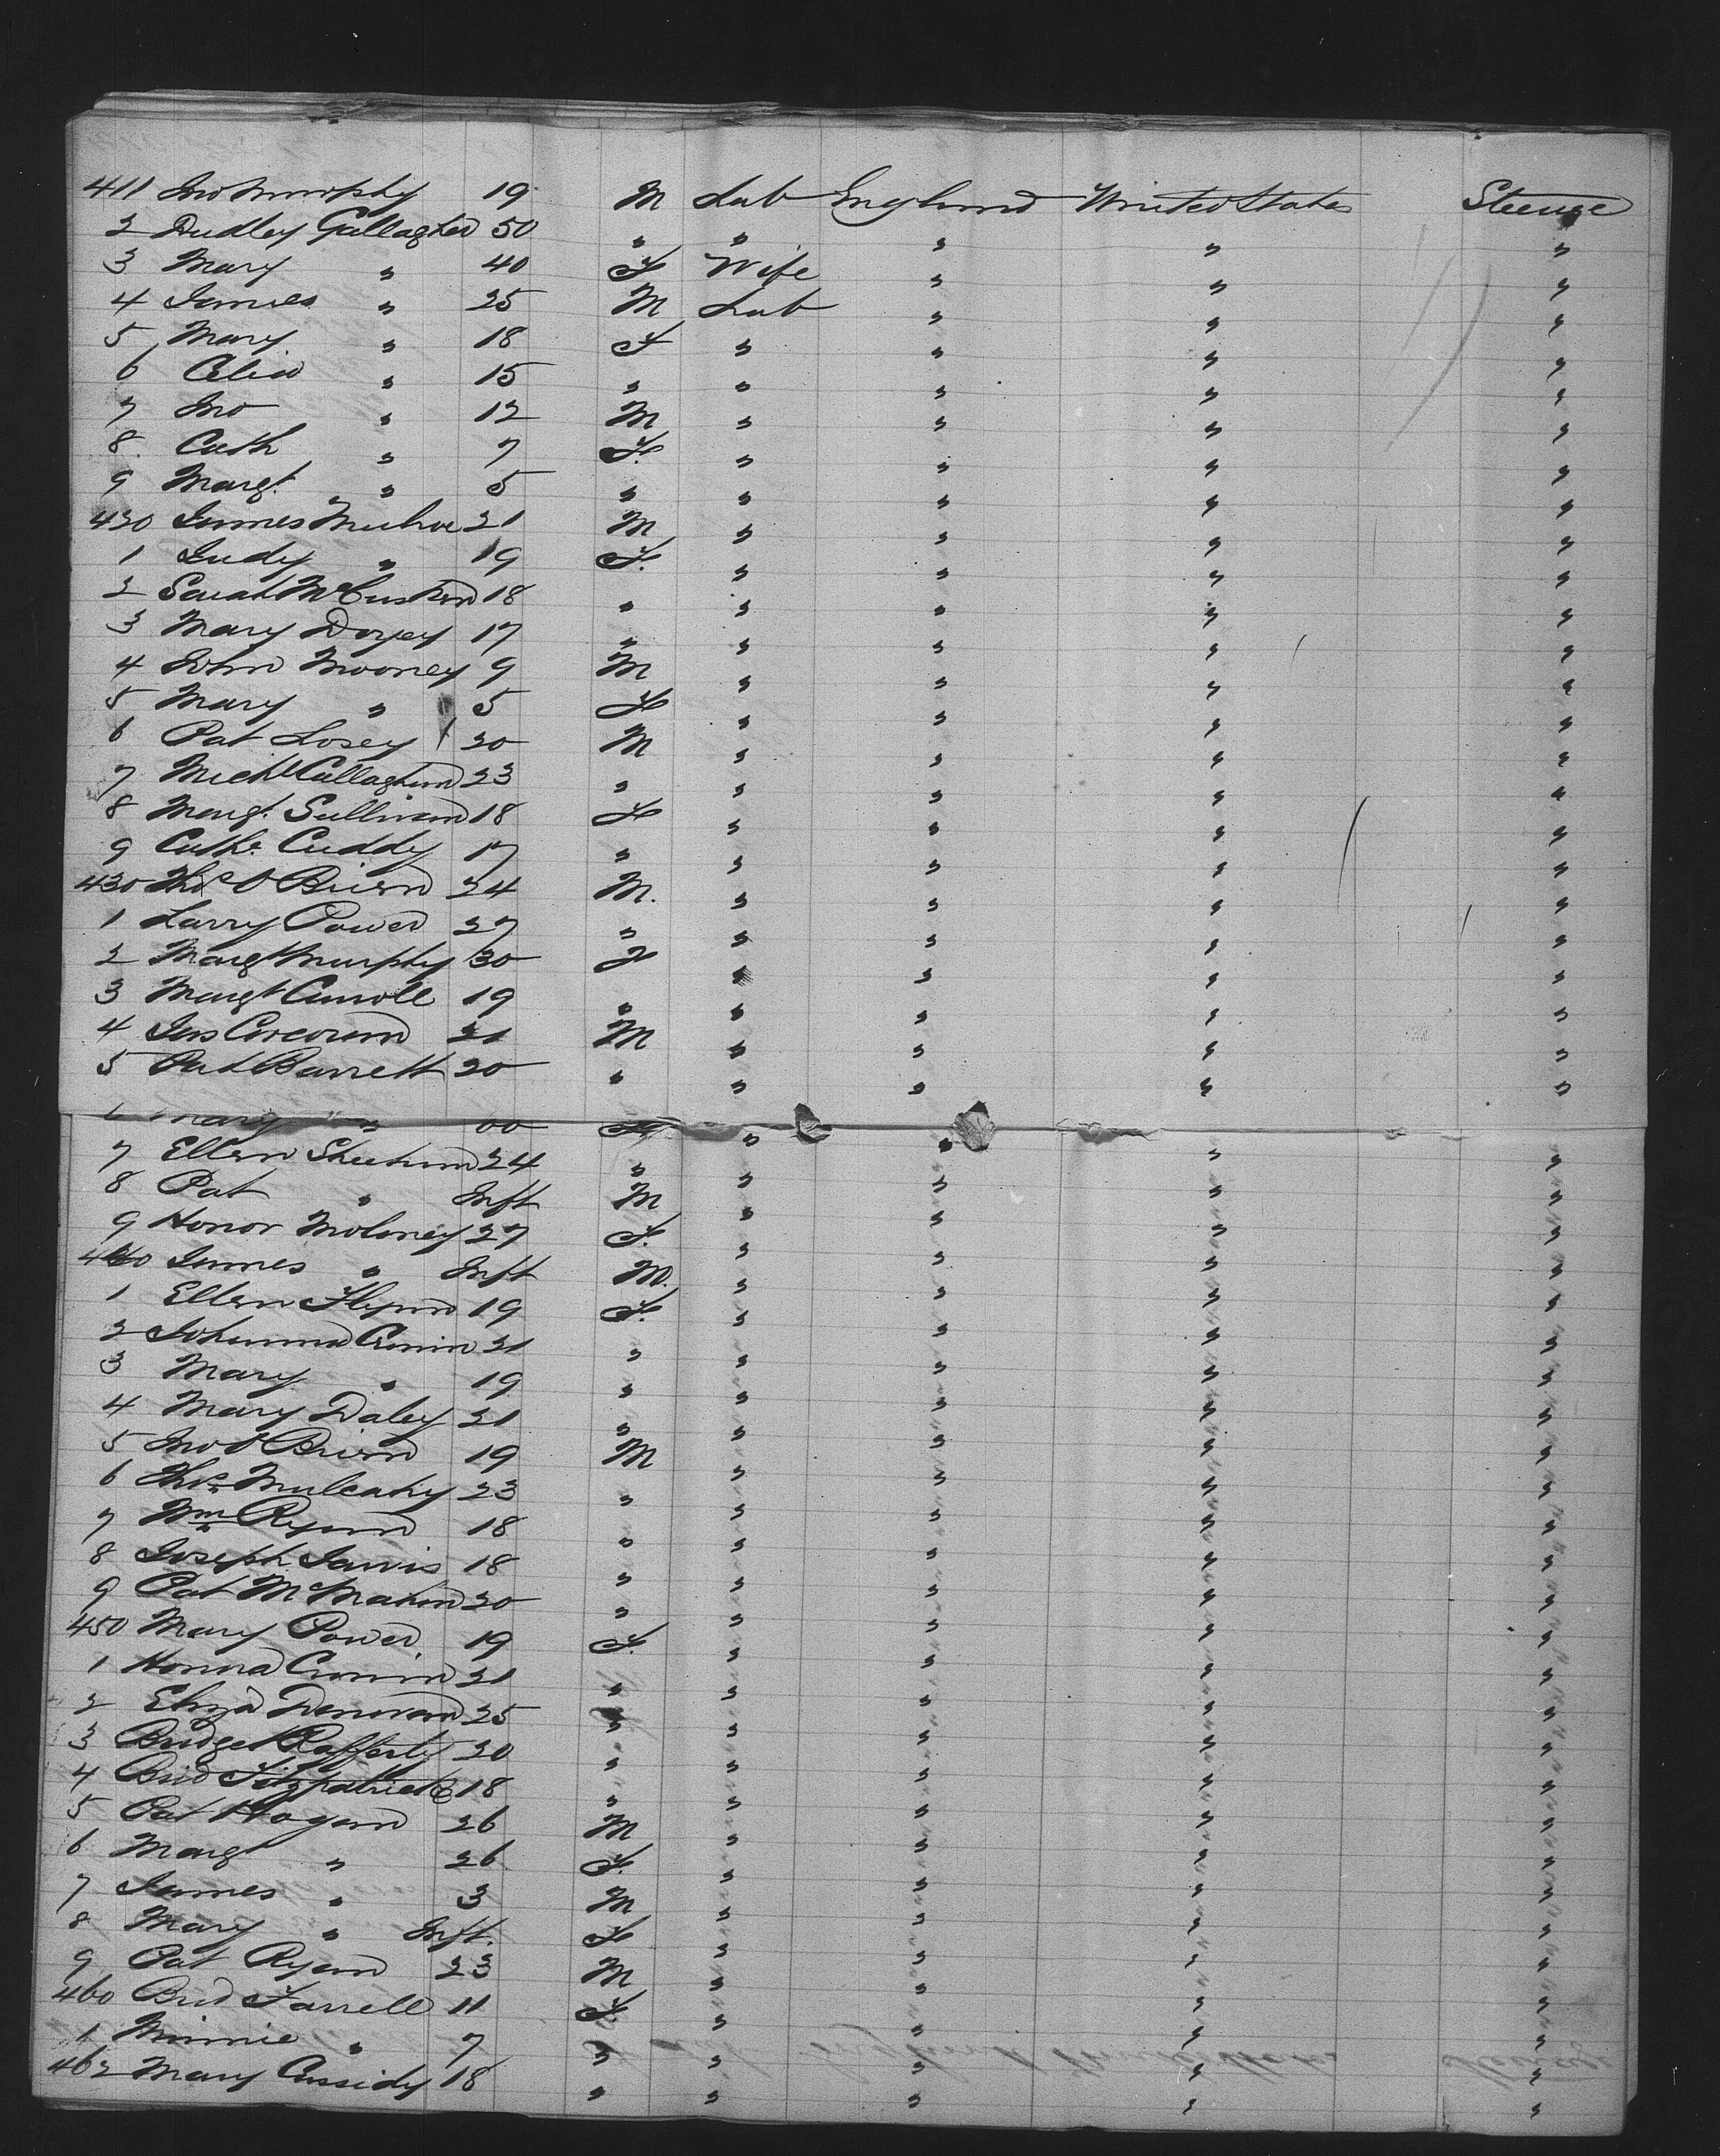 411 Jno Murphy 19 M Lab England United States Steerage
2 Dudley Gallagher 50 " " " " "
3 Mary " 40 F Wife " " "
4 James " 25 M Lab " " "
5 Mary " 18 F " " " "
6 Celia " 15 " " " " "
7 Jno " 12 M " " " "
8 Cath " 7 F " " " "
9 Margt " 5 " " " " "
420 James 21 M " " " "
1 Judy " 19 F. " " " "
2 Sarah McCusker 18 " " " " "
3 Mary 17 " " " " "
4 John Mooney 9 M " " " "
5 Mary " 5 F " " " "
6 Pat Losey 20 M " " " "
7 Michl Callaghan 23 " " " " "
8 Margt. Sullivan 18 F " " " "
9 Cathe Cuddy 17 " " " " "
430 Thos O Brien 24 M. " " " "
1 Larry Power 27 " " " " "
2 Margt Murphy 30 F " " " "
3 Margt Carroll 19 " " " " "
4 Jas Corcoran 21 M " " " "
5 Pat Barrett 20 " " " " "
6 Mary " 60 F " " " "
7 Ellen Sheehan 24 " " " " "
8 Pat " Inft M " " " "
9 Honor Moloney 27 F. " " " "
440 James " Inft M. " " " "
1 Ellen Flynn 19 F. " " " "
2 Johanna Cronin 21 " " " " "
3 Mary " 19 " " " " "
4 Mary Daley 21 " " " " "
5 Jno O Brien 19 M " " " "
6 Thos Mulcahy 23 " " " " "
7 Wm Ryan 18 " " " " "
8 Joseph Jarvis 18 " " " " "
9 Pat McMahon 20 " " " " "
450 Mary Power 19 F. " " " "
1 Honora Cronin 21 " " " " "
2 Eliza Donovan 25 " " " " "
3 Bridget Rafferty 20 " " " " "
4 Brid Fitzpatrick 18 " " " " "
5 Pat Hogan 26 M " " " "
6 Margt " 26 F. " " " "
7 James " 3 M " " " "
8 Mary " Inft. F " " " "
9 Pat Ryan 23 M " " " "
460 Brid Farrell 11 F. " " " "
1 Minnie " 7 " " " " "
462 Mary Cassidy 18 " " " " "